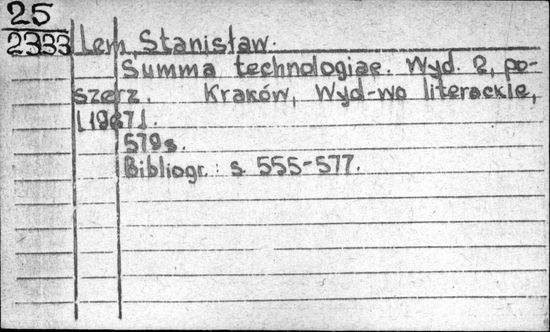 25
2333 Lem, Stanisław.
Summa technologiae. Wyd. 2, po-
szerz. Kraków, Wyd-wo literackie,
[1967].
579s.
Bibliogr.: s 555-577.